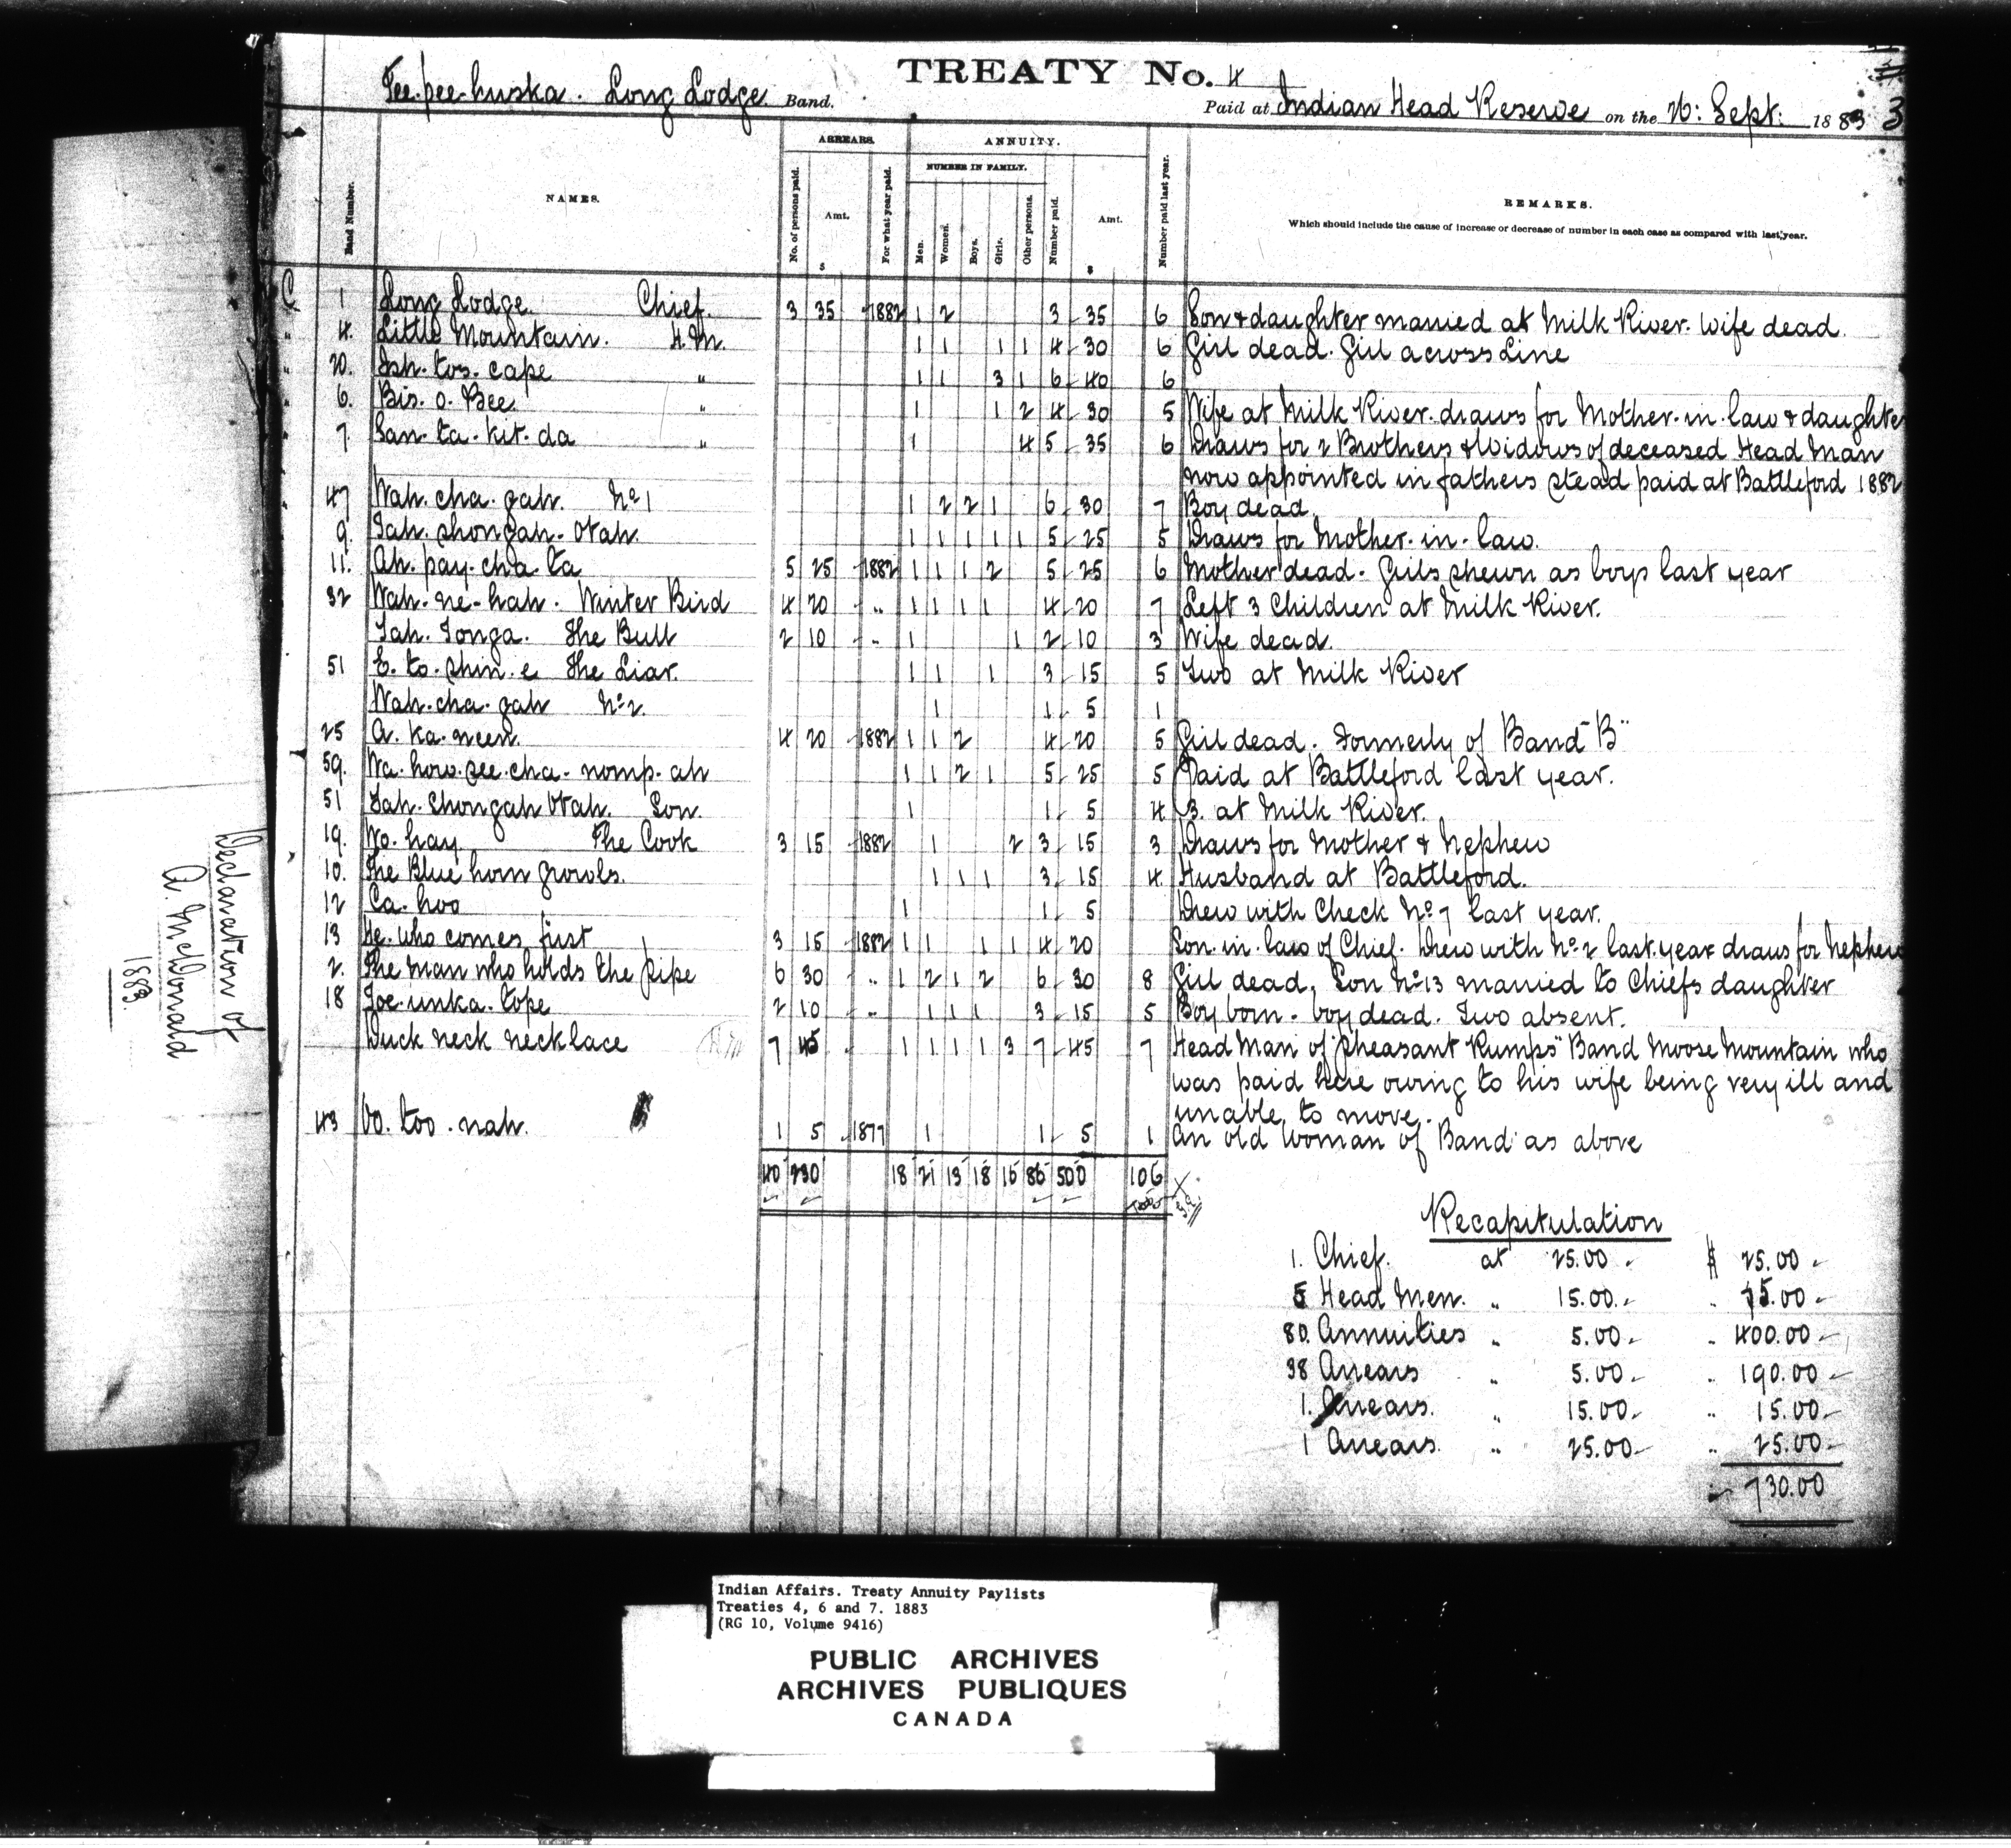 TREATY No. 4
Tee-pee-huska. Long Lodge Band.
Paid at Indian Head Reserve on the 26: Sept: 1883 3
Band Number.
NAMES.
ARREARS.
No. of persons paid.
Amt.
$
For what year paid.
ANNUITY.
NUMBER IN FAMILY.
Men.
Women.
Boys.
Girls.
Other persons.
Number paid.
Amt.
$
Number paid last year.
REMARKS.
Which should include the cause of increase or decrease of number in each case as compared with last year.
C 1 Long Lodge Chief. 3 35 1882 1 2 3 35 6 Son & daughter married at Milk River. Wife dead.
" 4. Little Mountain. H.M. 1 1 1 1 4 30 6 Girl dead. Girl across Line
" 20. Ish. tos. cape " 1 1 3 1 6 40 6
" 6. Bis. o. Bee. " 1 1 2 4 30 5 Wife at Milk River. draws for Mother. in. law & daughter
" 7. San. ta. kit. da " 1 4 5 35 6 Draws for 2 Brothers & Widows of deceased Head Man
now appointed in fathers stead paid at Battleford 1882
" 47 Wah. cha. gah. No 1 1 2 2 1 6 30 7 Boy dead.
9. Tah. shongah. Otah. 1 1 1 1 1 5 25 5 Draws for Mother. in. law.
11. Ah. pay. cha. ta 5 25 1882 1 1 1 2 5 25 6 Mother dead. Girls shewn as boys last year
32 Wah. ne. hah. Winter Bird 4 20 " 1 1 1 1 4 20 7 Left 3 Children at Milk River.
Tah. Tonga. The Bull 2 10 " 1 1 2 10 3 Wife dead.
51 E. to. shin. e The Liar. 1 1 1 3 15 5 Two at Milk River
Wah. cha. gah No 2. 1 1 5 1
25 A. ka. neen. 4 20 1882 1 1 2 4 20 5 Girl dead. Formerly of Band "B"
59. Wa. how. see. cha. nomp. ah 1 1 2 1 5 25 5 Paid at Battleford last year.
51 Tah. Shongah Otah. Son. 1 1 5 4 3. at Milk River.
19. Wo. hay The Cook 3 15 1882 1 2 3 15 3 Draws for Mother & Nephew
10. The Blue horn growls. 1 1 1 3 15 4 Husband at Battleford.
12 Ca. hoo 1 1 5 Drew with Check No 7 last year.
13 He. who comes first 3 15 1882 1 1 1 1 4 20 Son. in. law of Chief. Drew with No. 2 last year draws for Nephew
2. The man who holds the pipe 6 30 " 1 2 1 2 6 30 8 Girl dead. Son No 13 married to Chiefs daughter
18 Joe. unka. tope 2 10 " 1 1 1 3 15 5 Boy born. boy dead. Two absent.
Duck neck necklace 7 45 1 1 1 1 3 7 45 7 Head Man of "Pheasant Rumps" Band Moose Mountain who
was paid here owing to his wife being very ill and
unable to move.
43 Oo. too. nah. 1 5 1877 1 1 5 1 An old Woman of Band as above
40 230 18 21 13 18 16 86 500 106
Recapitulation
1. Chief. at 25.00 $ 25.00
5 Head Men. " 15.00 " 75.00
80. Annuities " 5.00 " 400.00
38 Arrears " 5.00 " 190.00
1. Arrears. " 15.00 " 15.00
1 Arrears. " 25.00 " 25.00
730.00
Declaration of
A. McDonald
1883.
Indian Affairs. Treaty Annuity Paylists
Treaties 4, 6 and 7. 1883
(RG 10, Volume 9416)
PUBLIC ARCHIVES
ARCHIVES PUBLIQUES
CANADA